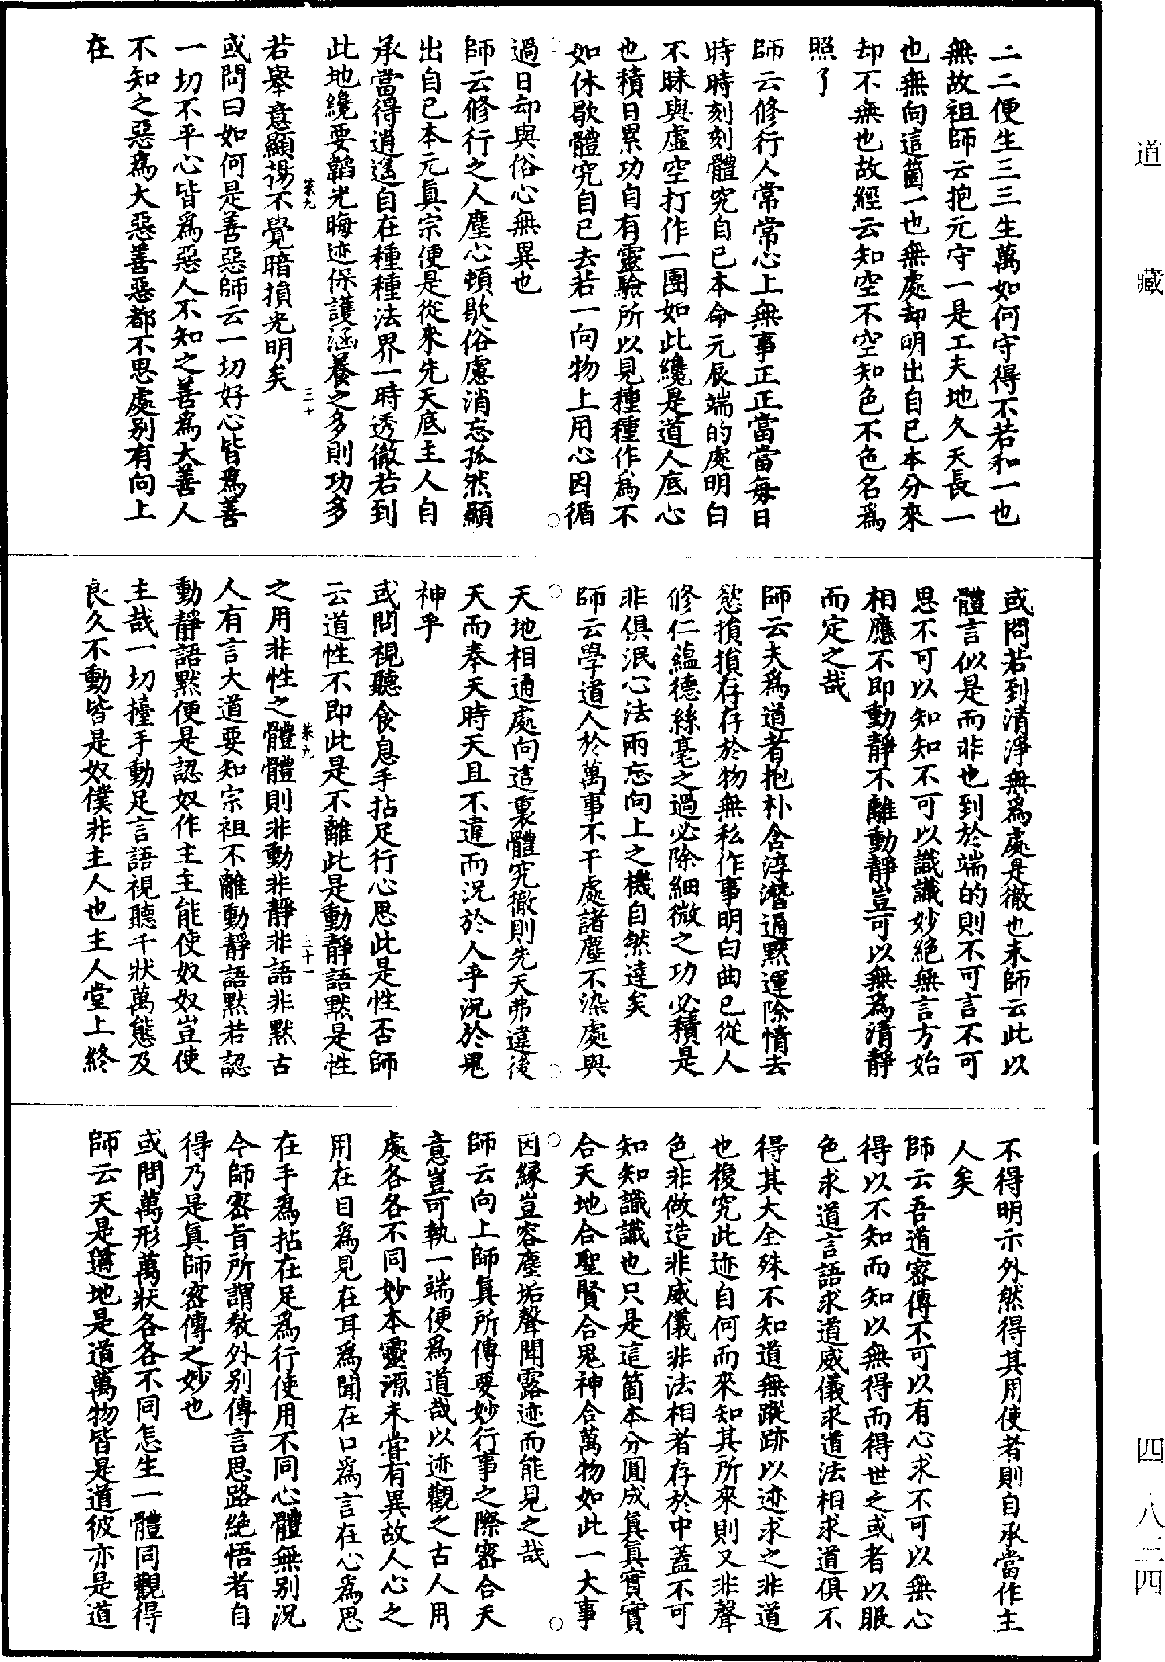 道藏
四 八三四
二二便生三三生萬如何守得不若和一也
無故祖師云抱元守一是工夫地久天長一
也無向這箇一也無處却明出自己本分來
却不無也故經云知空不空知色不色名爲
照了
師云修行人常常心上無事正正當當每日
時時刻刻體究自己本命元辰端的處明白
不昧與虛空打作一團如此纔是道人底心
也積日累功自有靈驗所以見種種作爲不
如休歇體究自己去若一向物上用心因循
過日却與俗心無異也
師云修行之人塵心頓歇俗慮消忘孤然顯
出自己本元真宗便是從來先天底主人自
承當得逍遙自在種種法界一時透徹若到
此地纔要韜光晦迹保護涵養之多則功多
若舉意顯揚不覺暗損光明矣
或問曰如何是善惡師云一切好心皆爲善
一切不平心皆爲惡人不知之善爲大善人
不知之惡爲大惡善惡都不思處别有向上
在
或問若到清淨無爲處是徹也未師云此以
體言似是而非也到於端的則不可言不可
思不可以知知不可以識識妙絶無言方始
相應不即動靜不離動靜豈可以無爲清靜
而定之哉
師云夫爲道者抱朴含淳潛通默運除情去
慾損損存存於物無私作事明白曲己從人
修仁蘊德絲毫之過必除細微之功必積是
非俱泯心法兩忘向上之機自然達矣
師云學道人於萬事不干處諸塵不染處與
天地相通處向這裏體究徹則先天弗違後
天而奉天時天且不違而況於人乎況於鬼
神乎
或問視聽食息手拈足行心思此是性否師
云道性不即此是不離此是動靜語默是性
之用非性之體體則非動非靜非語非默古
人有言大道要知宗祖不離動靜語默若認
動靜語默便是認奴作主主能使奴奴豈使
主哉一切擡手動足言語視聽千狀萬態及
良久不動皆是奴僕非主人也主人堂上終
不得明示外然得其用使者則自承當作主
人矣
師云吾道密傳不可以有心求不可以無心
得以不知而知以無得而得世之或者以眼
色求道言語求道威儀求道法相求道俱不
得其大全殊不知道無蹤跡以迹求之非道
也復究此迹自何而來知其所來則又非聲
色非做造非威儀非法相者存於中蓋不可
知知識識也只是這箇本分圓成真真實實
合天地合聖賢合鬼神合萬物如此一大事
因緣豈容塵垢聲聞露迹而能見之哉
師云向上師真所傳要妙行事之際密合天
意豈可執一端便爲道哉以迹觀之古人用
處各各不同妙本靈源未嘗有異故人心之
用在目爲見在耳爲聞在口爲言在心爲思
在手爲拈在足爲行使用不同心體無别況
今師密旨所謂教外别傳言思路絶悟者自
得乃是真師密傳之妙也
或問萬形萬狀各各不同怎生一體同觀得
師云天是道地是道萬物皆是道彼亦是道